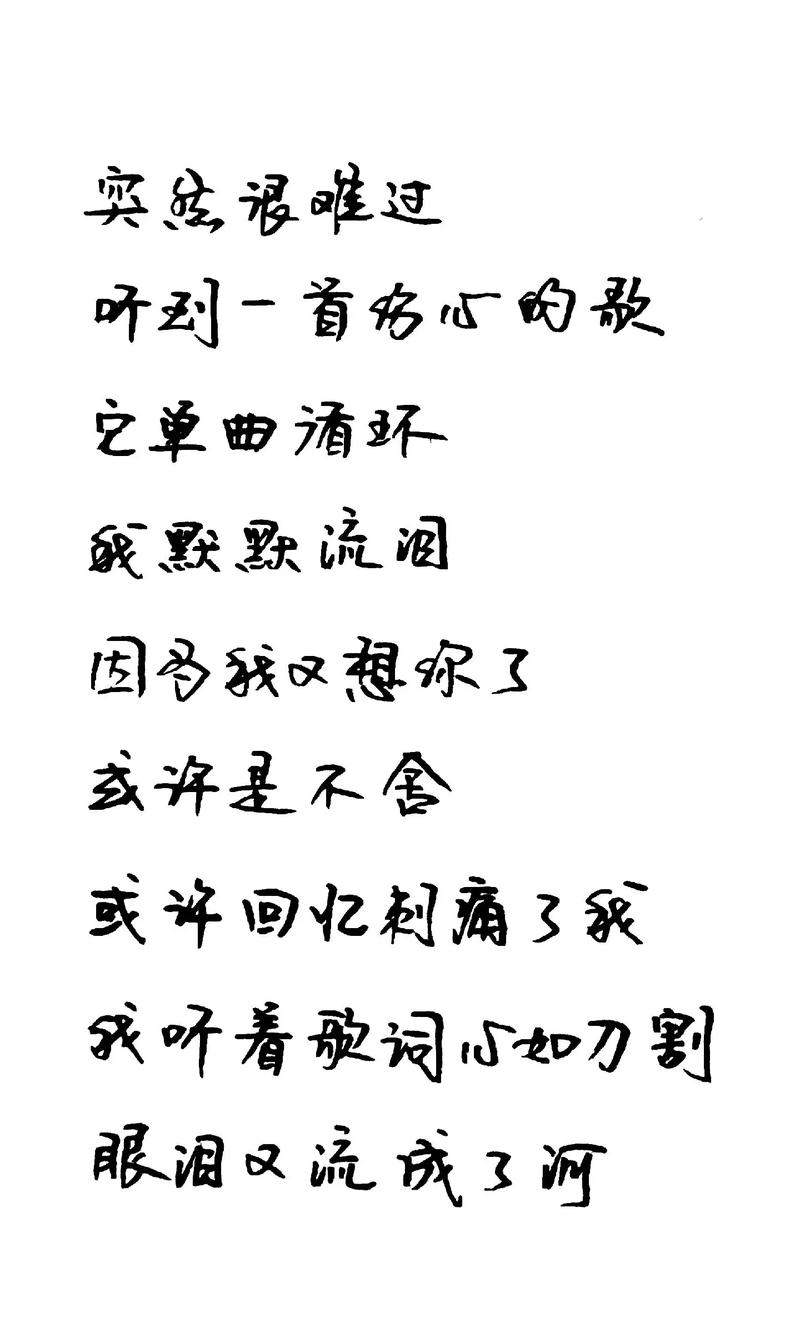 突然很难过
听到一首伤心的歌
它单曲循环
我默默流泪
因为我又想你了
或许是不舍
或许回忆刺痛了我
我听着歌词心如刀割
眼泪又流成了河